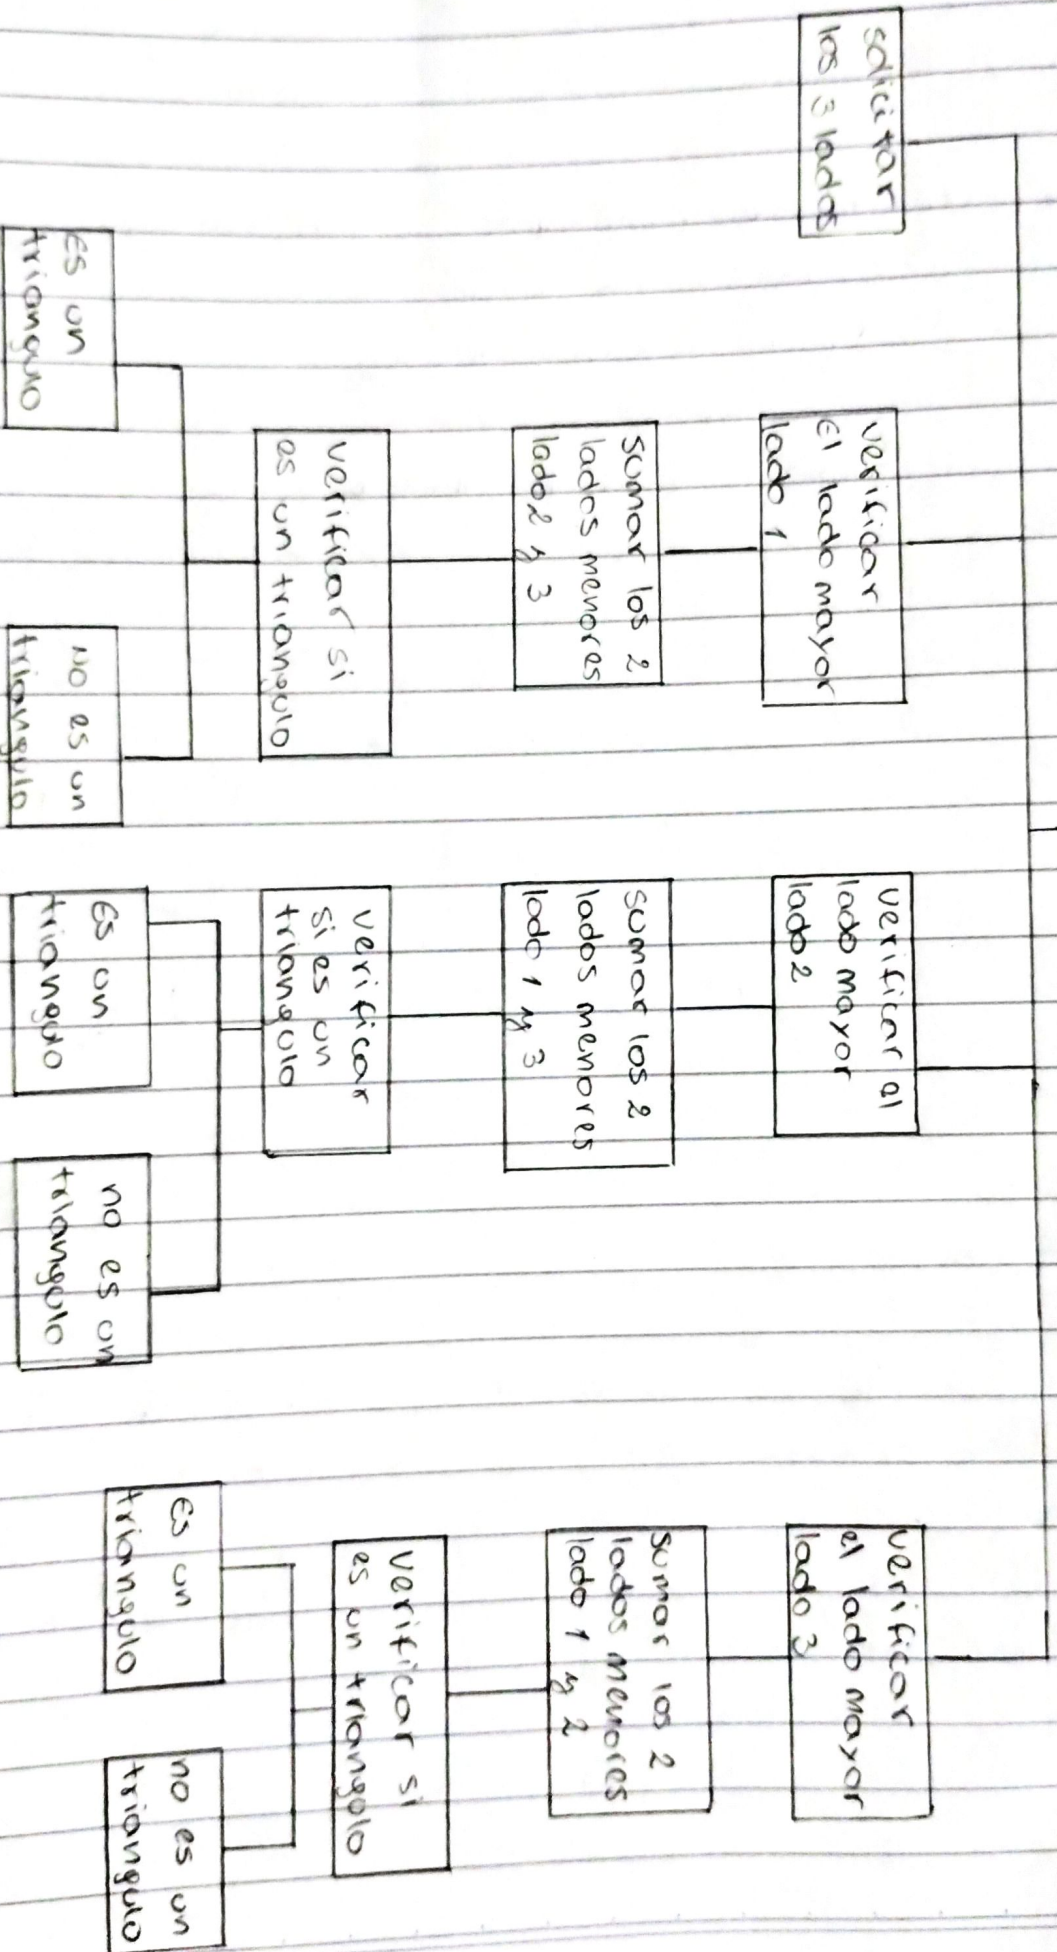 solicitar
los 3 lados
verificar
El lado mayor
lado 1
sumar los 2
lados menores
lado 2 y 3
verificar si
es un triangulo
Es un
triangulo
No es un
triangulo
verificar el
lado mayor
lado 2
sumar los 2
lados menores
lado 1 y 3
verificar
si es un
triangulo
Es un
triangulo
no es un
triangulo
verificar
el lado mayor
lado 3
sumar los 2
lados menores
lado 1 y 2
verificar si
es un triangulo
Es un
triangulo
no es un
triangulo